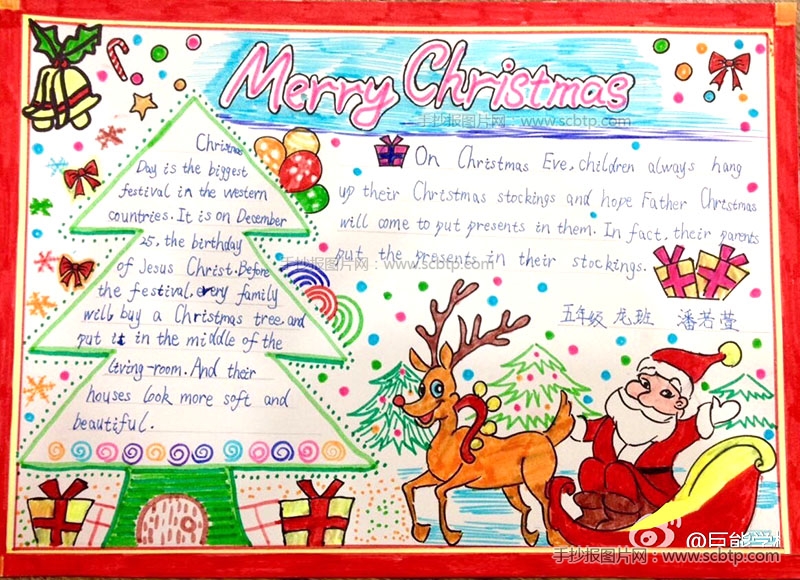 Merry Christmas
手抄报图片网:www.scbtp.com
Christmas
Day is the biggest
festival in the western
countries. It is on December
25, the birthday
of Jesus Christ. Before
the festival, every family
will buy a Christmas tree, and
put it in the middle of the
living-room. And their
houses look more soft and
beautiful.
On Christmas Eve, children always hang
up their Christmas stockings and hope Father Christmas
will come to put presents in them. In fact, their parents
put the presents in their stockings.
手抄报图片网:www.scbtp.com
五年级 龙班 潘若萱
@巨能学校
手抄报图片网:www.scbtp.com